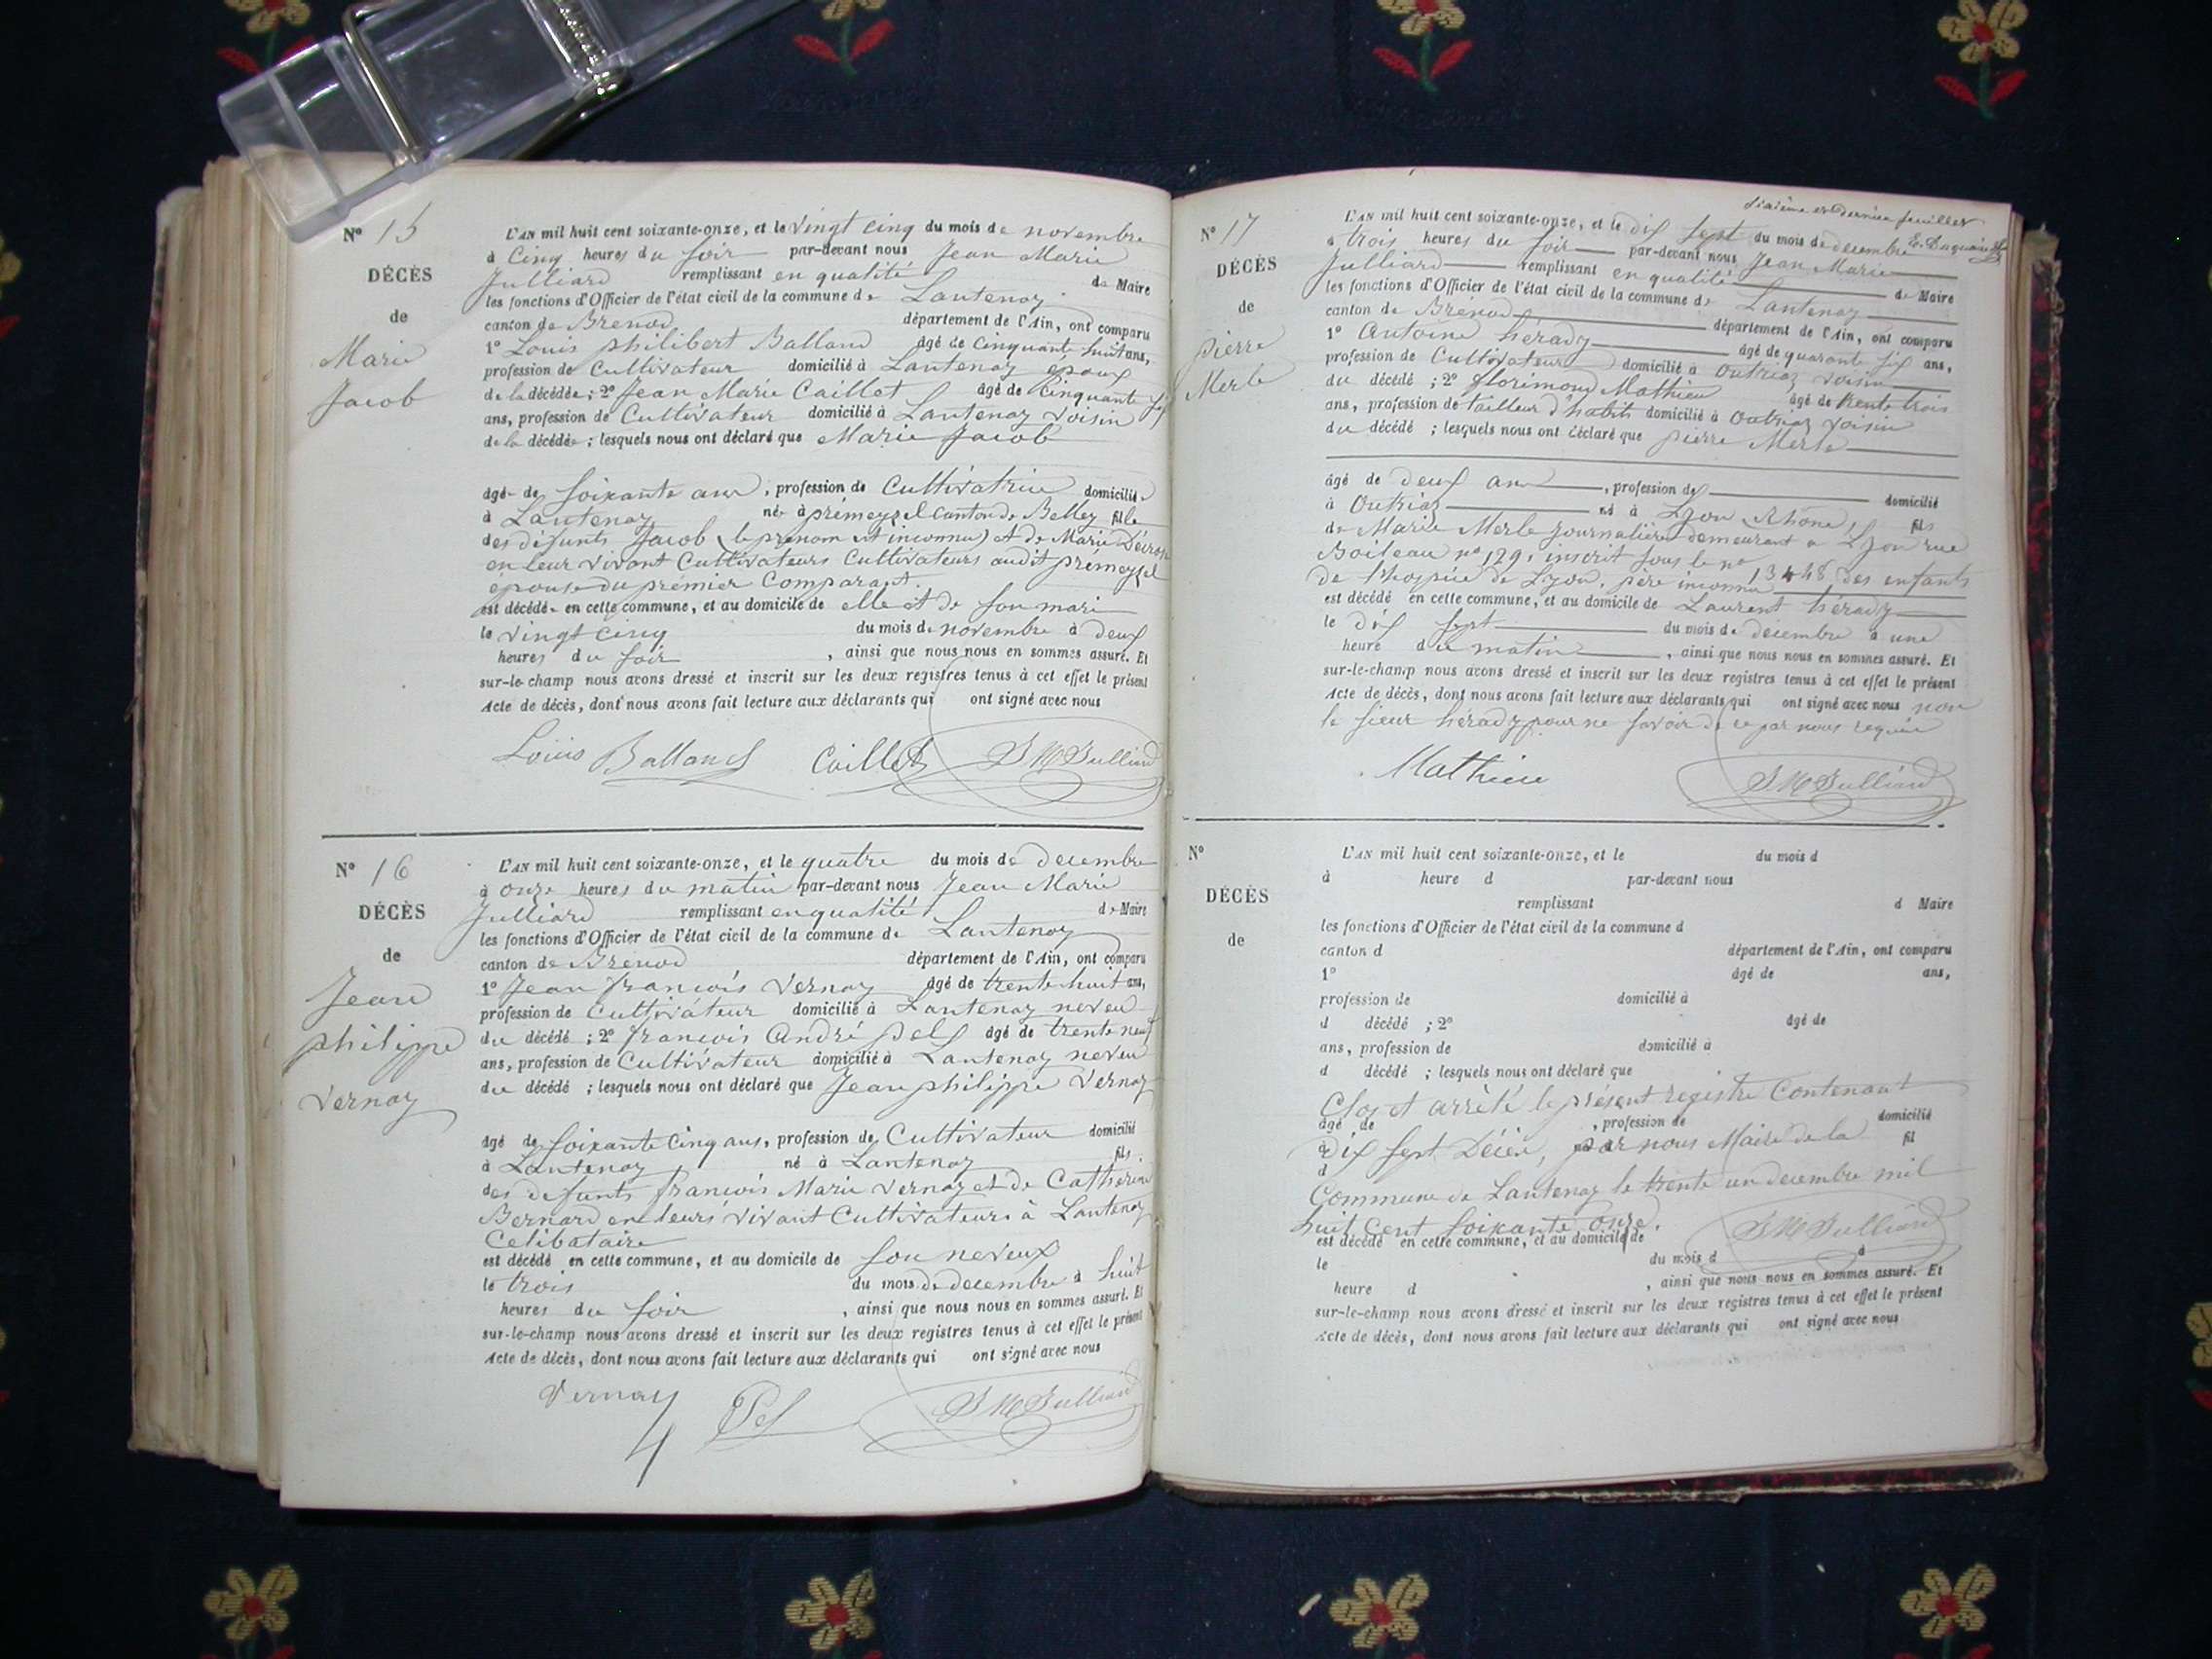 N° 15
DÉCÈS
de
Marie
Jacob
L'AN mil huit cent soixante-onze, et le vingt cinq du mois de novembre
à Cinq heures du soir par-devant nous Jean Marie
Julliard remplissant en qualité de Maire
les fonctions d'Officier de l'état civil de la commune de Lantenay
canton de Brenod département de l'Ain, ont comparu
1° Louis philibert Balland âgé de cinquante huit ans,
profession de Cultivateur domicilié à Lantenay epoux
de la décédée ; 2° Jean Marie Caillet âgé de Cinquante six
ans, profession de Cultivateur domicilié à Lantenay voisin
de la décédée ; lesquels nous ont déclaré que Marie Jacob
âgé de soixante ans, profession de Cultivatrice domiciliée
à Lantenay née à prémeyzel canton de Belley fille
des défunts Jacob (le prénom est inconnu) et de Marie
en leur vivant Cultivateurs Cultivateurs audit prémeyzel
épouse du prémier Comparant.
est décédée en cette commune, et au domicile de elle et de son mari
le vingt cinq du mois de novembre à deux
heures du soir, ainsi que nous nous en sommes assuré. Et
sur-le-champ nous avons dressé et inscrit sur les deux registres tenus à cet effet le présent
Acte de décès, dont nous avons fait lecture aux déclarants qui ont signé avec nous
Louis Balland Caillet J M Julliard
N° 16
DÉCÈS
de
Jean
philippe
Vernay
L'AN mil huit cent soixante-onze, et le quatre du mois de decembre
à onze heures du matin par-devant nous Jean Marie
Julliard remplissant en qualité de Maire
les fonctions d'Officier de l'état civil de la commune de Lantenay
canton de Brenod département de l'Ain, ont comparu
1° Jean françois Vernay âgé de trente huit ans,
profession de Cultivateur domicilié à Lantenay neveu
du décédé ; 2° françois André pel âgé de trente neuf
ans, profession de Cultivateur domicilié à Lantenay neveu
du décédé ; lesquels nous ont déclaré que Jean philippe Vernay
âgé de soixante Cinq ans, profession de Cultivateur domicilié
à Lantenay né à Lantenay fils
des defunts françois Marie Vernay et de Catherine
Bernard en leurs vivant Cultivateurs à Lantenay
Celibataire
est décédé en cette commune, et au domicile de son neveux
le trois du mois de decembre à huit
heures du soir, ainsi que nous nous en sommes assuré. Et
sur-le-champ nous avons dressé et inscrit sur les deux registres tenus à cet effet le présent
Acte de décès, dont nous avons fait lecture aux déclarants qui ont signé avec nous
Vernay Pel J M Julliard
4
sixième et dernier feuillet
N° 17
DÉCÈS
de
pierre
Merle
L'AN mil huit cent soixante-onze, et le dix sept du mois de decembre
à trois heures du soir par-devant nous Jean Marie
Julliard remplissant en qualité de Maire
les fonctions d'Officier de l'état civil de la commune de Lantenay
canton de Brénod département de l'Ain, ont comparu
1° Antoine hérady âgé de quarante six ans,
profession de Cultivateur domicilié à Outriaz voisin
du décédé ; 2° florimond Mathieu âgé de trente trois
ans, profession de tailleur d'habits domicilié à Outriaz voisin
du décédé ; lesquels nous ont déclaré que pierre Merle
âgé de deux ans, profession de domicilié
à Outriaz né à Lyon Rhône, fils
de Marie Merle journalière demeurant à Lyon rue
Boileau n° 129, inscrit sous le n° 13448 des enfants
de l'hospice de Lyon, père inconnu
est décédé en cette commune, et au domicile de Laurent hérady
le dix sept du mois de décembre à une
heure du matin, ainsi que nous nous en sommes assuré. Et
sur-le-champ nous avons dressé et inscrit sur les deux registres tenus à cet effet le présent
Acte de décès, dont nous avons fait lecture aux déclarants qui ont signé avec nous non
le sieur hérady pour ne savoir de ce par nous requis
Mathieu J M Julliard
N°
DÉCÈS
de
L'AN mil huit cent soixante-onze, et le du mois d
à heure d par-devant nous
remplissant d Maire
les fonctions d'Officier de l'état civil de la commune d
canton d département de l'Ain, ont comparu
1° âgé de ans,
profession de domicilié à
d décédé ; 2° âgé de
ans, profession de domicilié à
d décédé ; lesquels nous ont déclaré que
Clos et arrêté le présent registre Contenant
âgé de , profession de domicilié
dix sept Décès, par nous Maire de la fil
d
Commune de Lantenay le trente un decembre mil
huit Cent soixante onze. J M Julliard
est décédé en cette commune, et au domicile de
le du mois d à
heure d , ainsi que nous nous en sommes assuré. Et
sur-le-champ nous avons dressé et inscrit sur les deux registres tenus à cet effet le présent
Acte de décès, dont nous avons fait lecture aux déclarants qui ont signé avec nous